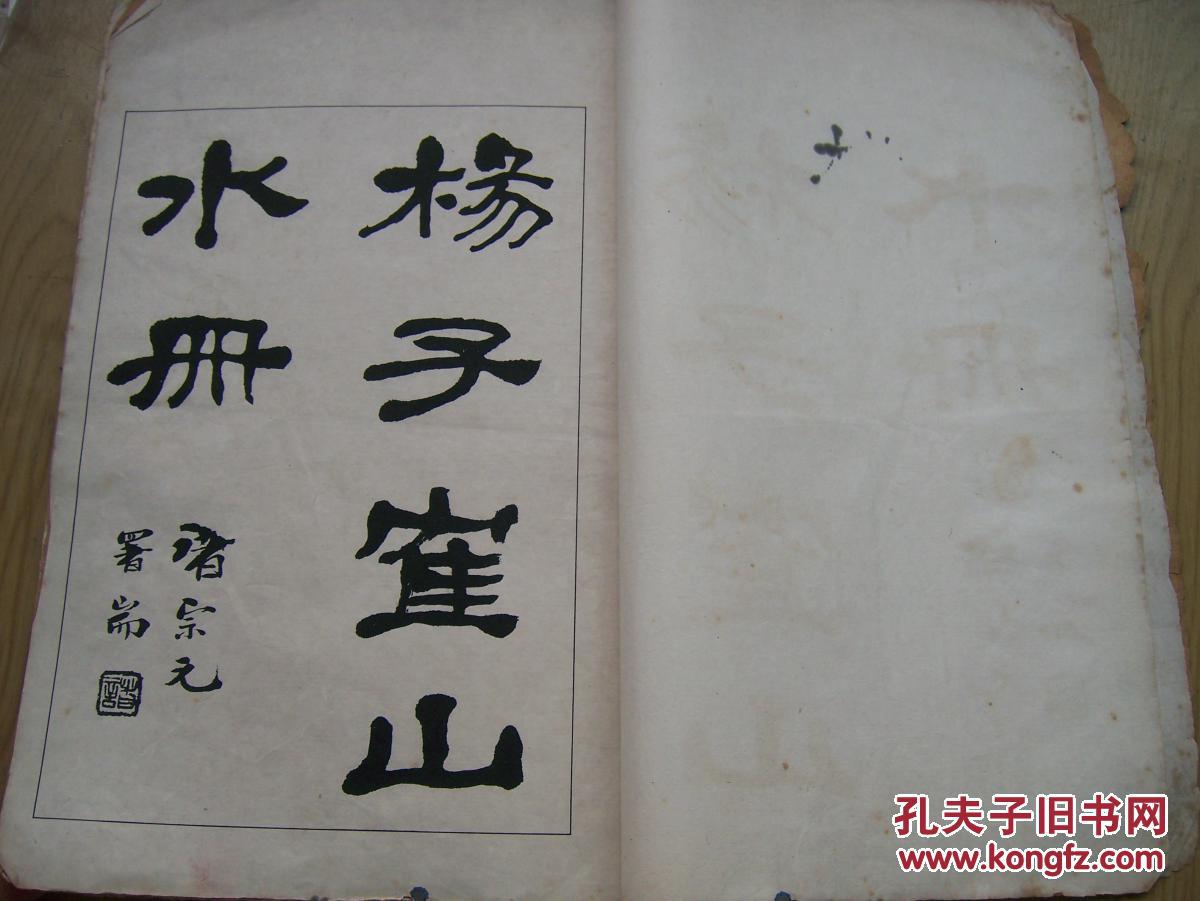 楊子寉山
水冊
諸宗元
署耑
孔夫子旧书网
www.kongfz.com